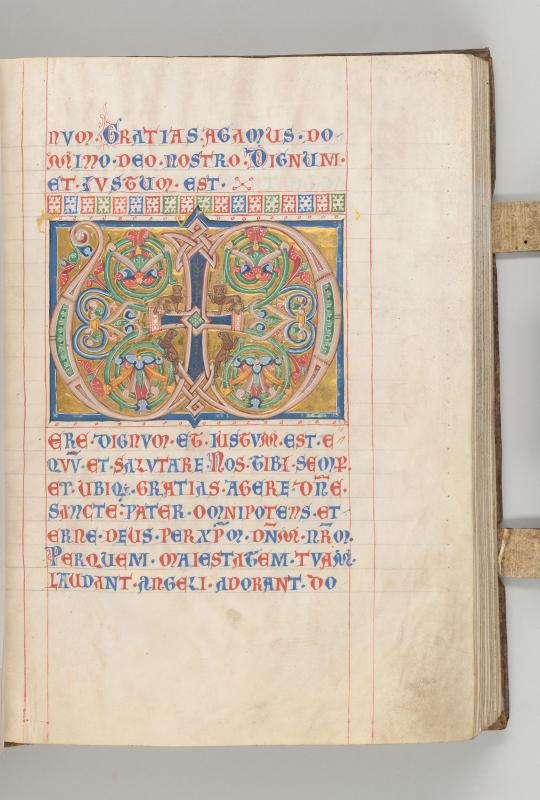 NUM·GRATIAS·AGAMUS·DO
MINO·DEO·NOSTRO·DIGNUM·
ET·IUSTUM·EST·
ERE·DIGNUM·ET·IUSTUM·EST·E
QUU·ET·SALUTARE·NOS·TIBI·SEMP̄.
ET·UBIQ;·GRATIAS·AGERE·DN̄E·
SANCTE·PATER·OMNIPOTENS·ET
ERNE·DEUS·PER XP̄M·DN̄M·NR̄M·
PERQUEM·MAIESTATEM·TUAM·
LAUDANT·ANGELI·ADORANT·DO